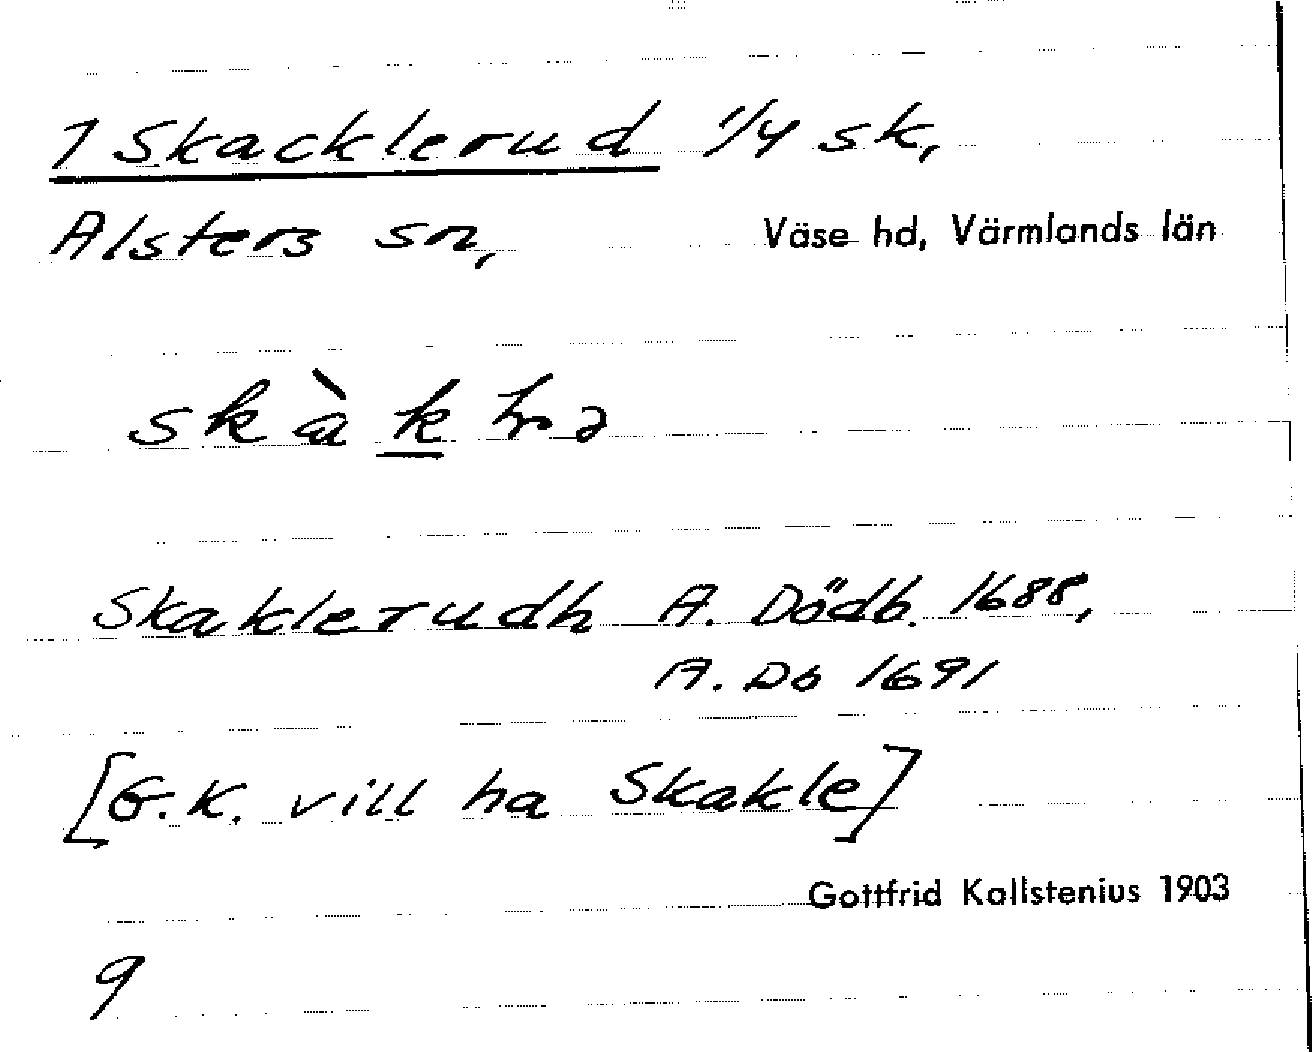 1 Skacklerud 1/4 sk,
Alsters sn, Väse hd, Värmlands län
Skaklerudh A. Dödb. 1688,
A. Db 1691
[G.K. vill ha Skakle]
Gottfrid Kallstenius 1903
9